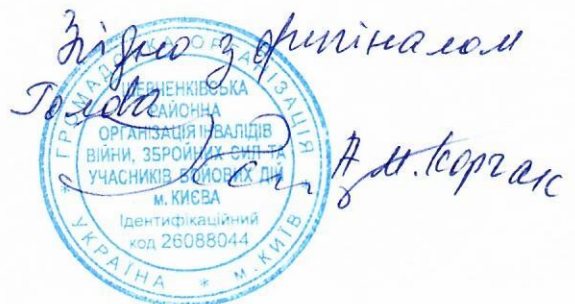 Згідно з оригіналом
Голова
А.М. Корчак
ГРОМАДСЬКА ОРГАНІЗАЦІЯ
ШЕВЧЕНКІВСЬКА
РАЙОННА
ОРГАНІЗАЦІЯ ІНВАЛІДІВ
ВІЙНИ, ЗБРОЙНИХ СИЛ ТА
УЧАСНИКІВ БОЙОВИХ ДІЙ
м. КИЄВА
Ідентифікаційний
код 26088044
* УКРАЇНА * м. КИЇВ *